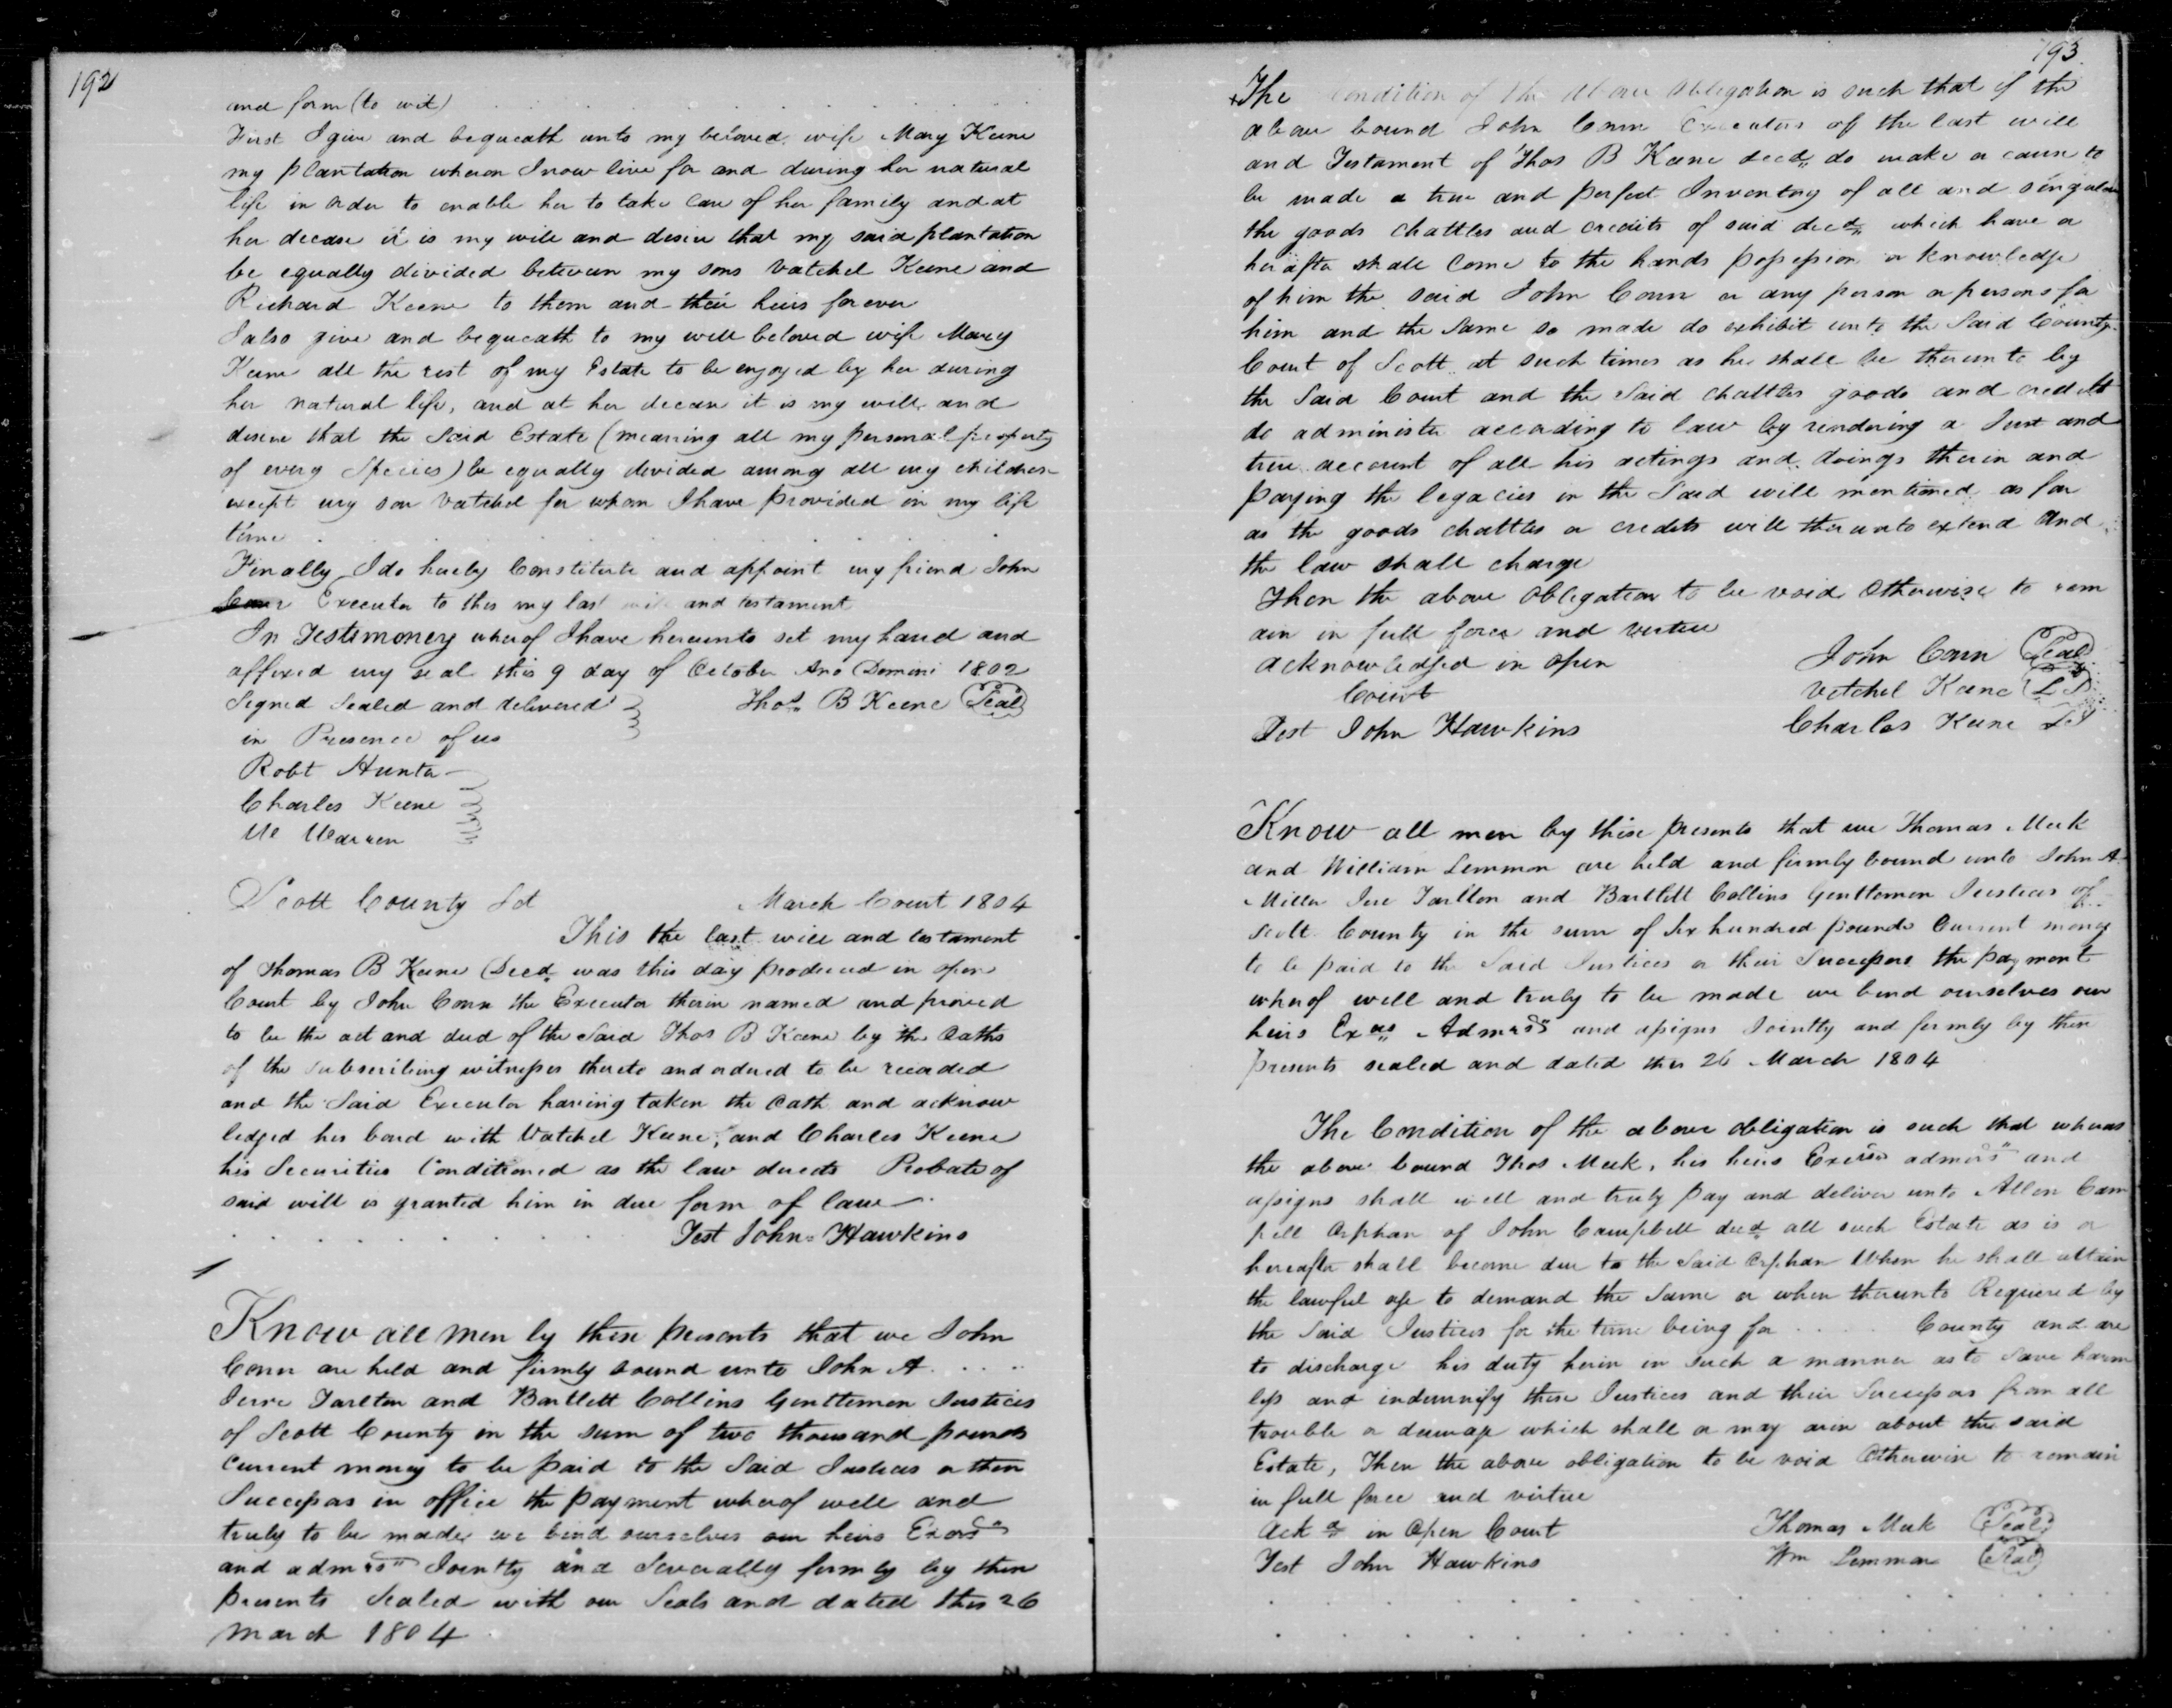 192
and form (to wit)
First I give and bequeath unto my beloved wife Mary Keene
my plantation wheron I now live for and during her natural
life in order to enable her to take care of her family and at
her decese it is my will and desire that my said plantation
be equally divided between my sons Vatchel Keene and
Richard Keene to them and their heirs forever
I also give and bequeath to my well beloved wife Mary
Keene all the rest of my Estate to be enjoyed by her during
her natural life, and at her decease it is my will and
desire that the said Estate (meaning all my personal property
of every Species) be equally devided among all my children
except my son Vatchel for whom I have provided in my life
time
Finally I do hereby Constitute and appoint my friend John
Conn Executor to this my last will and testament
In Testimoney wherof I have hereunto set my hand and
affixed my seal this 9 day of October Ano Domini 1802
Signed Sealed and delivered Thos B Keene Seal
in Presence of us
Robt Hunter
Charles Keene
W Warren
Scott County Sct March Court 1804
This the last will and testament
of Thomas B Keene Decd was this day produced in open
Court by John Conn the Executor therin named and proved
to be the act and deed of the Said Thos B Keene by the Oaths
of the Subscribing witnesses thereto and ordered to be recorded
and the Said Executor having taken the Oath and acknow
ledged his bond with Vatchel Keene, and Charles Keene
his Securities Conditioned as the law directs Probate of
said will is granted him in due form of law
Test John Hawkins
Know all men by these presents that we John
Conn are held and firmly bound unto John A
Jerre Tarlton and Bartlett Collins Genttemen Justices
of Scott County in the sum of two thousand pounds
Current money to be paid to the Said Justices or their
Successors in office the payment wherof well and
truly to be made we bind ourselves our heirs Exors
and admrs Jointly and Severally firmly by these
presents Sealed with our Seals and dated this 26
March 1804
193
The condition of the above obligation is such that if the
above bound John Conn Executor of the last will
and Testament of Thos B Keene decd do make or cause to
be made a true and perfect Inventory of all and singular
the goods chattles and credits of said decd which have or
herafter shall come to the hands possession or knowledge
of him the said John Conn or any person or persons for
him and the same so made do exhibit unto the Said County
Court of Scott at such times as he shall be therunto by
the Said Court and the Said chattles goods and credits
do administer according to law by rendering a Just and
true account of all his actings and doings therin and
paying the legacies in the Said will mentioned as far
as the goods chattles or credits will therunto extend and
the law shall charge
Then the above Obligation to be void Otherwise to rem
ain in full force and vertue
acknowledged in open John Conn Seal
Court Vetchel Keene LS
Test John Hawkins Charles Keene LS
Know all men by these presents that we Thomas Meek
and William Lemmon are held and firmly bound unto John A
Miller Jere Tarlton and Bartlett Collins Genttemen Justices of
Scott County in the sum of Six hundred pounds Current money
to be paid to the Said Justices or their Successors the payment
wherof well and truly to be made we bend ourselves our
heirs Exors Admrs and assigns Jointly and fermly by these
presents sealed and dated this 26 March 1804
The Condition of the above obligation is such that wheras
the above bound Thos Meek, his heirs Exers admrs and
assigns shall well and truly pay and deliver unto Allen Cam
pell Orphan of John Campbell decd all such Estate as is or
hereafter shall become due to the Said Orphan When he shall attain
the lawful age to demand the Same or when therunto Requiered by
the Said Justices for the time being for County and are
to discharge his duty herin in such a manner as to Save harm
less and indemnify these Justices and their Successors from all
trouble or damage which shall or may arise about the said
Estate, Then the above obligation to be void Otherwise to remain
in full force and virtue
Ackd in Open Court Thomas Meek Seal
Test John Hawkins Wm Lemmon Seal